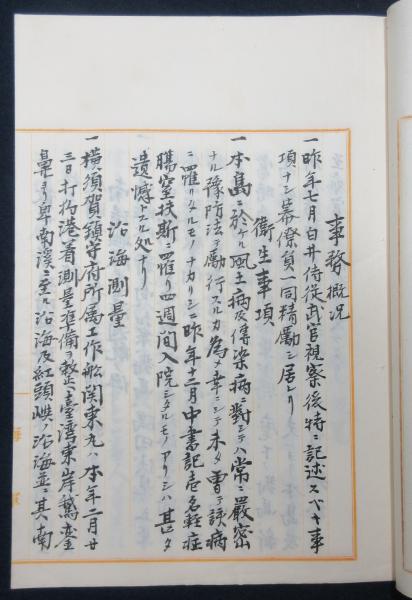 事務概況
一昨年七月白井侍従武官視察後特ニ記述スベキ事
項ナシ幕僚員一同精勵シ居レリ
衛生事項
一本島ニ於ケル風土病及傳染病ニ對シテハ常ニ嚴密
ナル豫防法ヲ勵行スルカ為メ幸ニシテ未タ曽テ該病
ニ罹リタルモノナカリシニ昨年十二月中書記壱名軽症
膓窒扶斯ニ罹リ四週間入院シタルモノアリシハ甚ダ
遺憾トスル処ナリ
沿海測量
一橫須賀鎮守府所属工作船関東丸ハ本年二月廿
三日打狗港着測量準備ヲ整ヘ臺湾東岸鵞鑾
鼻ヨリ卑南溪ニ至ル沿海及紅頭嶼ノ沿海並ニ其南